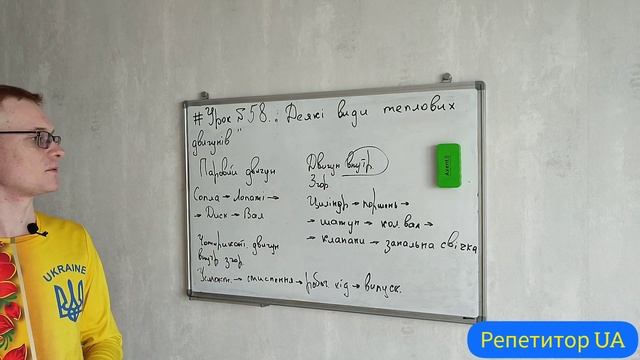 #Урок №58.: „Деякі види теплових
двигунів"
Паровий двигун
Сопла → Лопаті →
→ Диск → Вал
Двигун внутр.
Згор.
Циліндр → поршень →
→ шатун → кол. вал →
→ клапани → запальна свічка
Чотирикт. двигун
внутр згор.
→ стиснення → робоч. хід → випуск.
Axent
UKRAINE
Репетитор UA